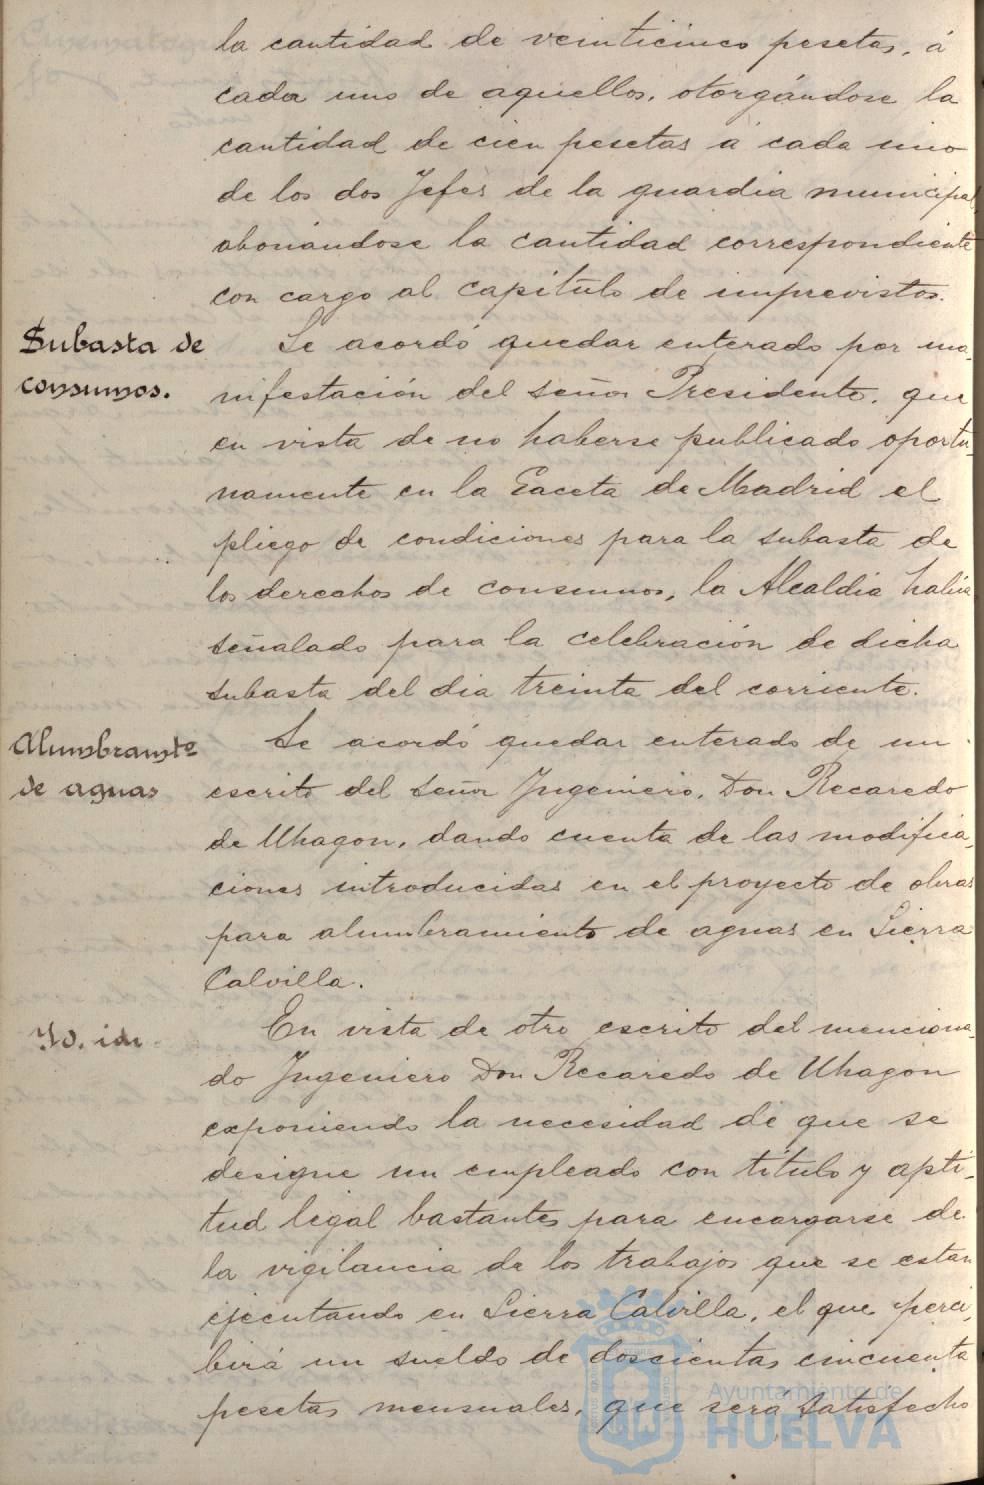 la cantidad de veinticinco pesetas, á
cada uno de aquellos, otorgándose la
cantidad de cien pesetas á cada uno
de los dos Jefes de la guardia municipal,
abonándose la cantidad correspondiente
con cargo al capítulo de imprevistos.
Subasta de
consumos.
Se acordó quedar enterado por ma-
nifestación del señor Presidente, que
en vista de no haberse publicado oportu-
namente en la Gaceta de Madrid el
pliego de condiciones para la subasta de
los derechos de consumos, la Alcaldia había
señalado para la celebración de dicha
subasta del dia treinta del corriente.
Alumbramto
de aguas
Se acordó quedar enterado de un
escrito del señor Ingeniero, Don Recaredo
de Uhagon, dando cuenta de las modifica-
ciones introducidas en el proyecto de obras
para alumbramiento de aguas en Sierra
Calvilla.
Yd. id.
En vista de otro escrito del menciona-
do Ingeniero Don Recaredo de Uhagon
exponiendo la necesidad de que se
designe un empleado con título y apti-
tud legal bastantes para encargarse de
la vigilancia de los trabajos que se estan
ejecutando en Sierra Calvilla, el que perci-
birá un sueldo de doscientas cincuenta
pesetas mensuales, que será satisfecho
Ayuntamiento de
HUELVA